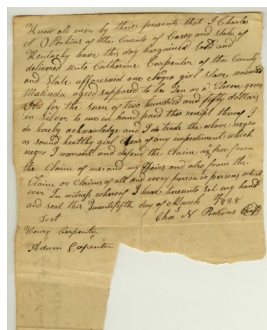 Know all men by these presents that I Charles
N Perkins of the County of Casey and State of
Kentucky have this day bargained Sold and
delivered unto Catherine Carpenter of the County
and State afforesaid one Negro girl Slave named
Malinda aged supposed to be Ten or a Eleven years
Old for the sum of two hundred and fifty dollars
in Silver to me in hand paid the receipt thereof I
do hereby acknowledge and I do the above negro
as sound healthy girl Clear of any impediment which
negro I warrant and defend the Claim as free from
the Claim of me and my Heirs and also from the
Claim or Claims of all and every person or persons what
ever In witness whereof I have hereunto Set my hand
and seal this Twenty fifth day of March 1828
Test Chas N Perkins
Henry Carpenter
Adam Carpenter